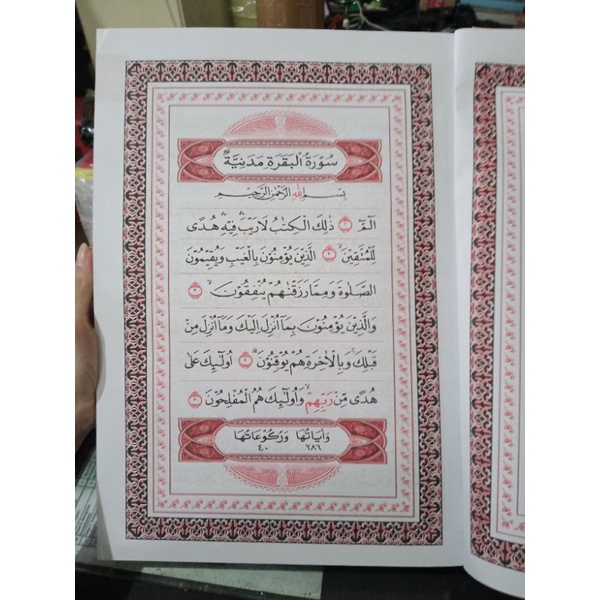 سُوْرَةُ الْبَقَرَةِ مَدَنِيَّةٌ
بِسْمِ اللهِ الرَّحْمٰنِ الرَّحِيْمِ
الٓمّٓ ١ ذٰلِكَ الْكِتٰبُ لَا رَيْبَ ۛ فِيْهِ ۛ هُدًى
لِّلْمُتَّقِيْنَ ۙ ٢ الَّذِيْنَ يُؤْمِنُوْنَ بِالْغَيْبِ وَيُقِيْمُوْنَ
الصَّلٰوةَ وَمِمَّا رَزَقْنٰهُمْ يُنْفِقُوْنَ ۙ ٣
وَالَّذِيْنَ يُؤْمِنُوْنَ بِمَآ اُنْزِلَ اِلَيْكَ وَمَآ اُنْزِلَ مِنْ
قَبْلِكَ ۚ وَبِالْاٰخِرَةِ هُمْ يُوْقِنُوْنَ ۗ ٤ اُولٰٓئِكَ عَلٰى
هُدًى مِّنْ رَّبِّهِمْ ۙ وَاُولٰٓئِكَ هُمُ الْمُفْلِحُوْنَ ٥
وَاٰيَاتُهَا وَرُكُوْعَاتُهَا
٢٨٦ ٤٠